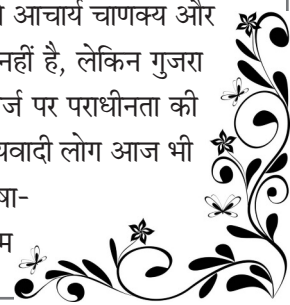 आचार्य चाणक्य और
नहीं है, लेकिन गुजरा
पर पराधीनता की
लोग आज भी